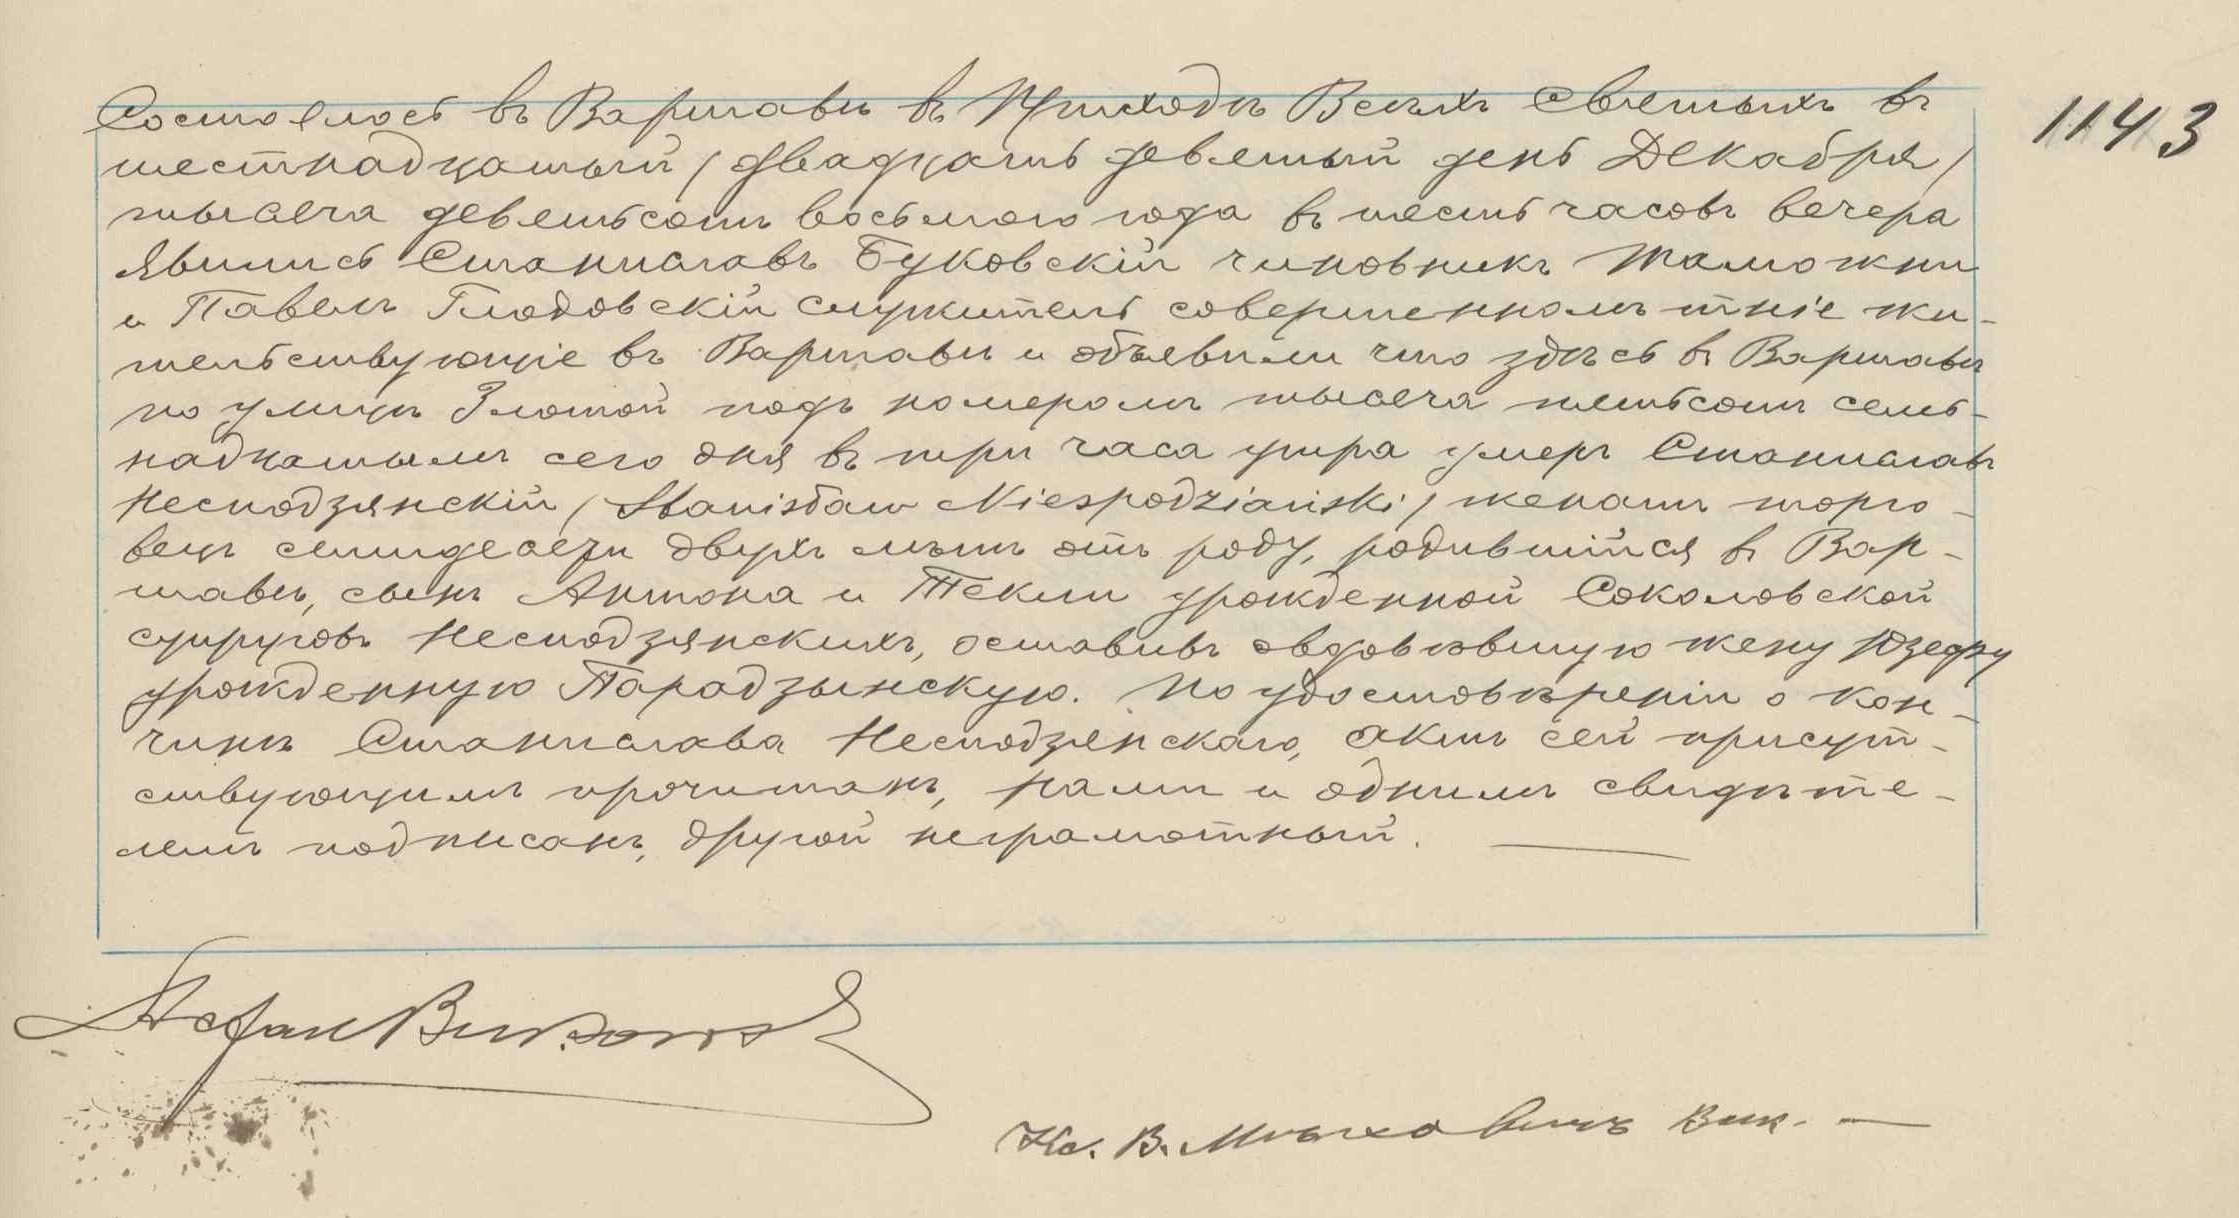 Состоялось въ Варшавѣ въ Приходѣ Всѣхъ Святыхъ въ
1143
шестнадцатый / двадцать девятый день Декабря /
тысяча девятьсотъ восьмого года въ шесть часовъ вечера
явились Станиславъ Буковскій чиновникъ таможни
и Павелъ Глодовскій служитель совершеннолѣтніе жи-
тельствующіе въ Варшавѣ и объявили что здѣсь въ Варшавѣ
по улицѣ Злотой подъ номеромъ тысяча пятьсотъ семь-
надцатымъ сего дня въ три часа утра умеръ Станиславъ
Несподзянскій / Stanisław Niespodziański / женатъ торго-
вецъ семидесяти двухъ лѣтъ отъ роду, родившійся въ Вар-
шавѣ, сынъ Антона и Текли урожденной Соколовской
супруговъ Несподзянскихъ, оставивъ овдовѣвшую жену Юзефу
урожденную Парадзынскую. По удостовѣреніи о кон-
чинѣ Станислава Несподзянскаго, актъ сей присут-
ствующимъ прочитанъ, нами и однимъ свидѣте-
лемъ подписанъ, другой неграмотный.
Кс. В. Вик.